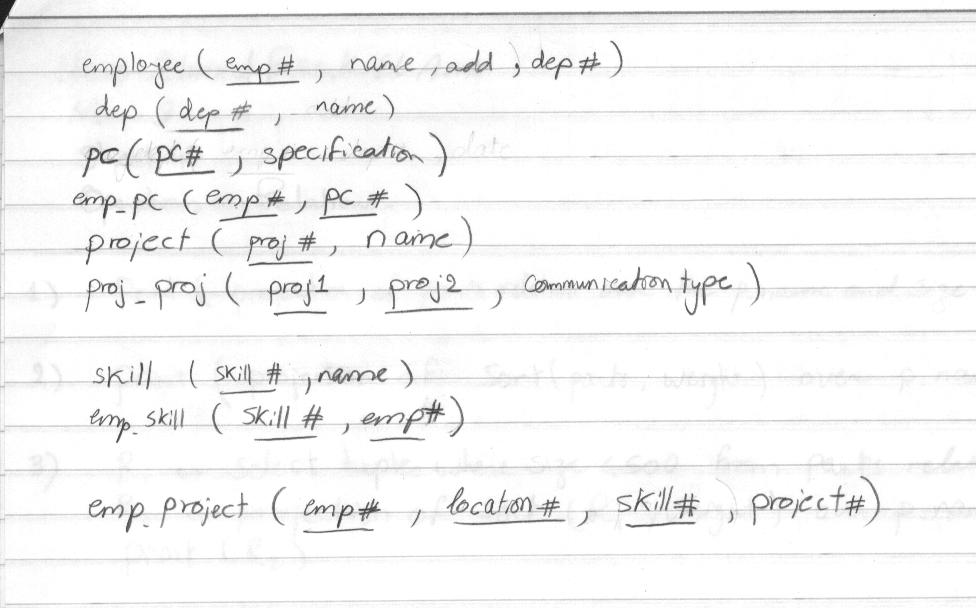 employee ( emp # , name , add , dep # )
dep ( dep # , name )
pc ( pc# , specification )
emp_pc ( emp # , pc # )
project ( proj # , name )
proj_proj ( proj1 , proj2 , communication type )
skill ( skill # , name )
emp_skill ( skill # , emp# )
emp_project ( emp# , location # , skill # , project # )